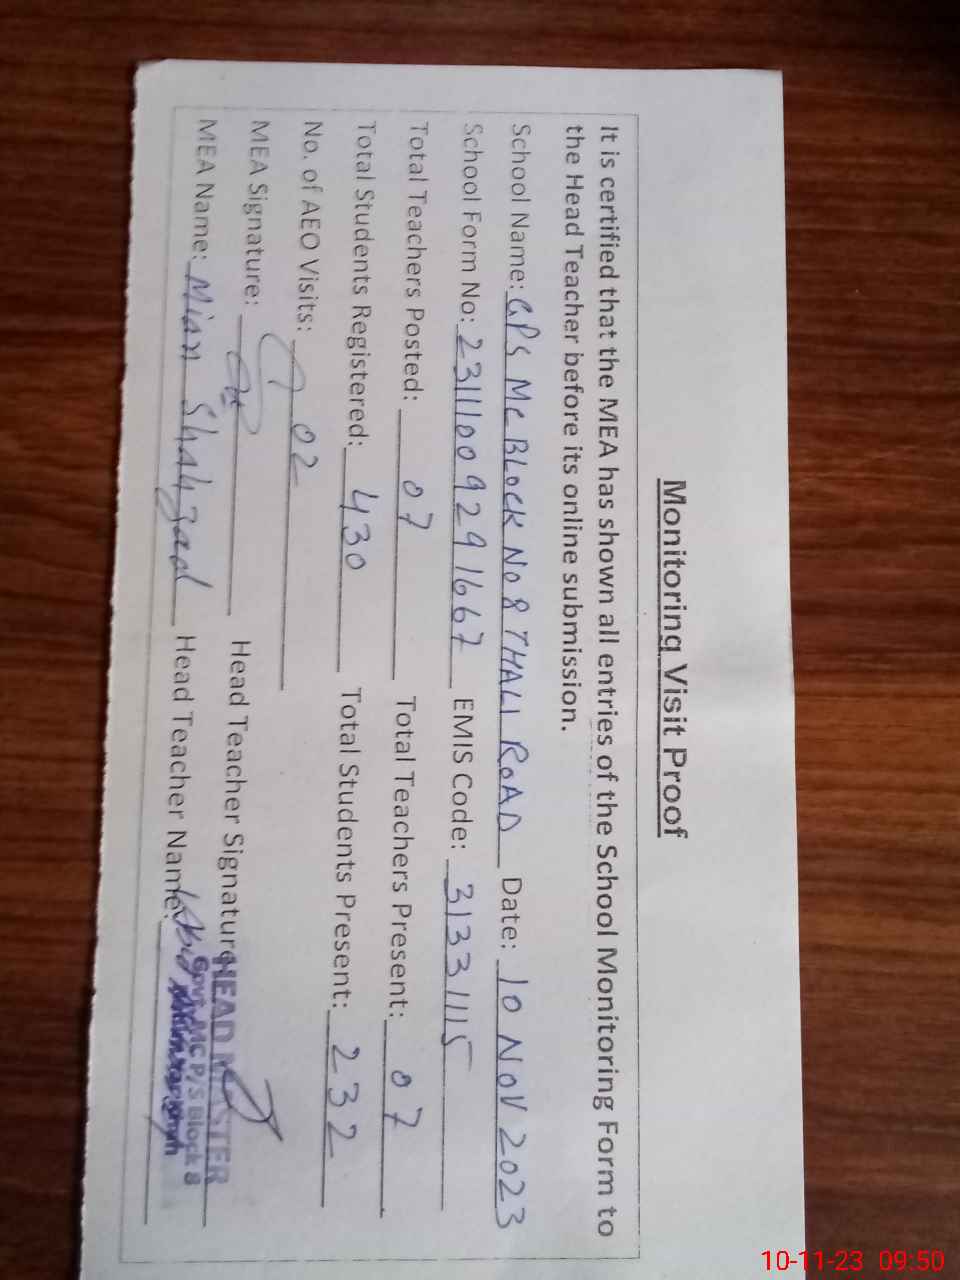 Monitoring Visit Proof
It is certified that the MEA has shown all entries of the School Monitoring Form to
the Head Teacher before its online submission.
School Name: GPS MC BLOCK NO 8 THALI ROAD Date: 10 NOV 2023
School Form No: 23111009291667 EMIS Code: 31331115
Total Teachers Posted: 07 Total Teachers Present: 07
Total Students Registered: 430 Total Students Present: 232
No. of AEO Visits: 02
MEA Signature: Head Teacher Signature:
HEAD MASTER
MEA Name: Mian Shahzad Head Teacher Name:
Govt. MC P/S Block 8
10-11-23 09:50